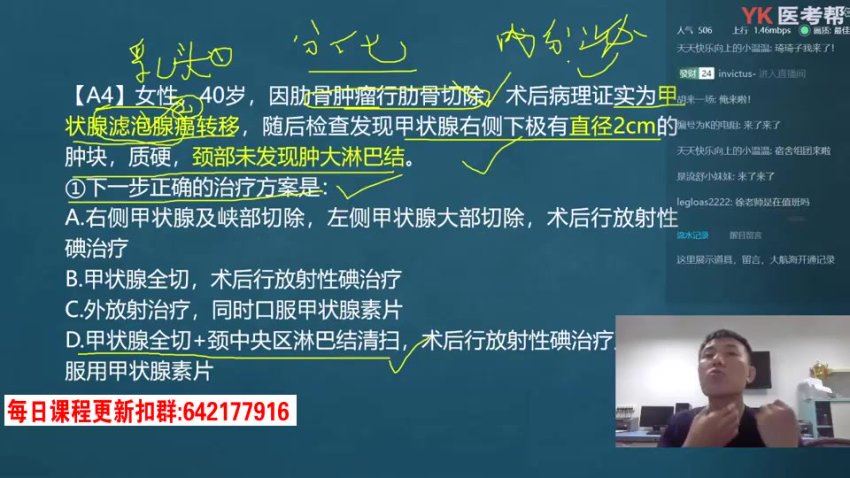 YK医考帮
人气 506 上行 1.46mbps 画质: 最佳
天天快乐向上的小温温: 琦琦子我来了!
發财 24 invictus- 进入直播间
胡来一场: 俺来啦!
编号为K的电阳: 来了来了
天天快乐向上的小温温: 宿舍组团来啦
是流舒小妹妹: 来了来了
legloas2222: 徐老师是在值班吗
流水记录 醒目留言
这里展示道具，留言，大航海开通记录
乳头①
分化
【A4】女性，40岁，因肋骨肿瘤行肋骨切除，术后病理证实为甲
状腺滤泡腺癌转移，随后检查发现甲状腺右侧下极有直径2cm的
肿块，质硬，颈部未发现肿大淋巴结。
①下一步正确的治疗方案是：
A.右侧甲状腺及峡部切除，左侧甲状腺大部切除，术后行放射性
碘治疗
B.甲状腺全切，术后行放射性碘治疗
C.外放射治疗，同时口服甲状腺素片
D.甲状腺全切+颈中央区淋巴结清扫，术后行放射性碘治疗
服用甲状腺素片
每日课程更新扣群:642177916